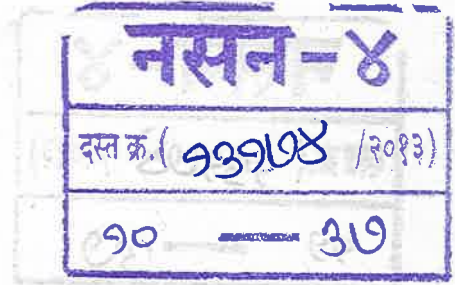 नसन-४
दस्त क्र.( १३१७४ /२०१३)
१० — ३७